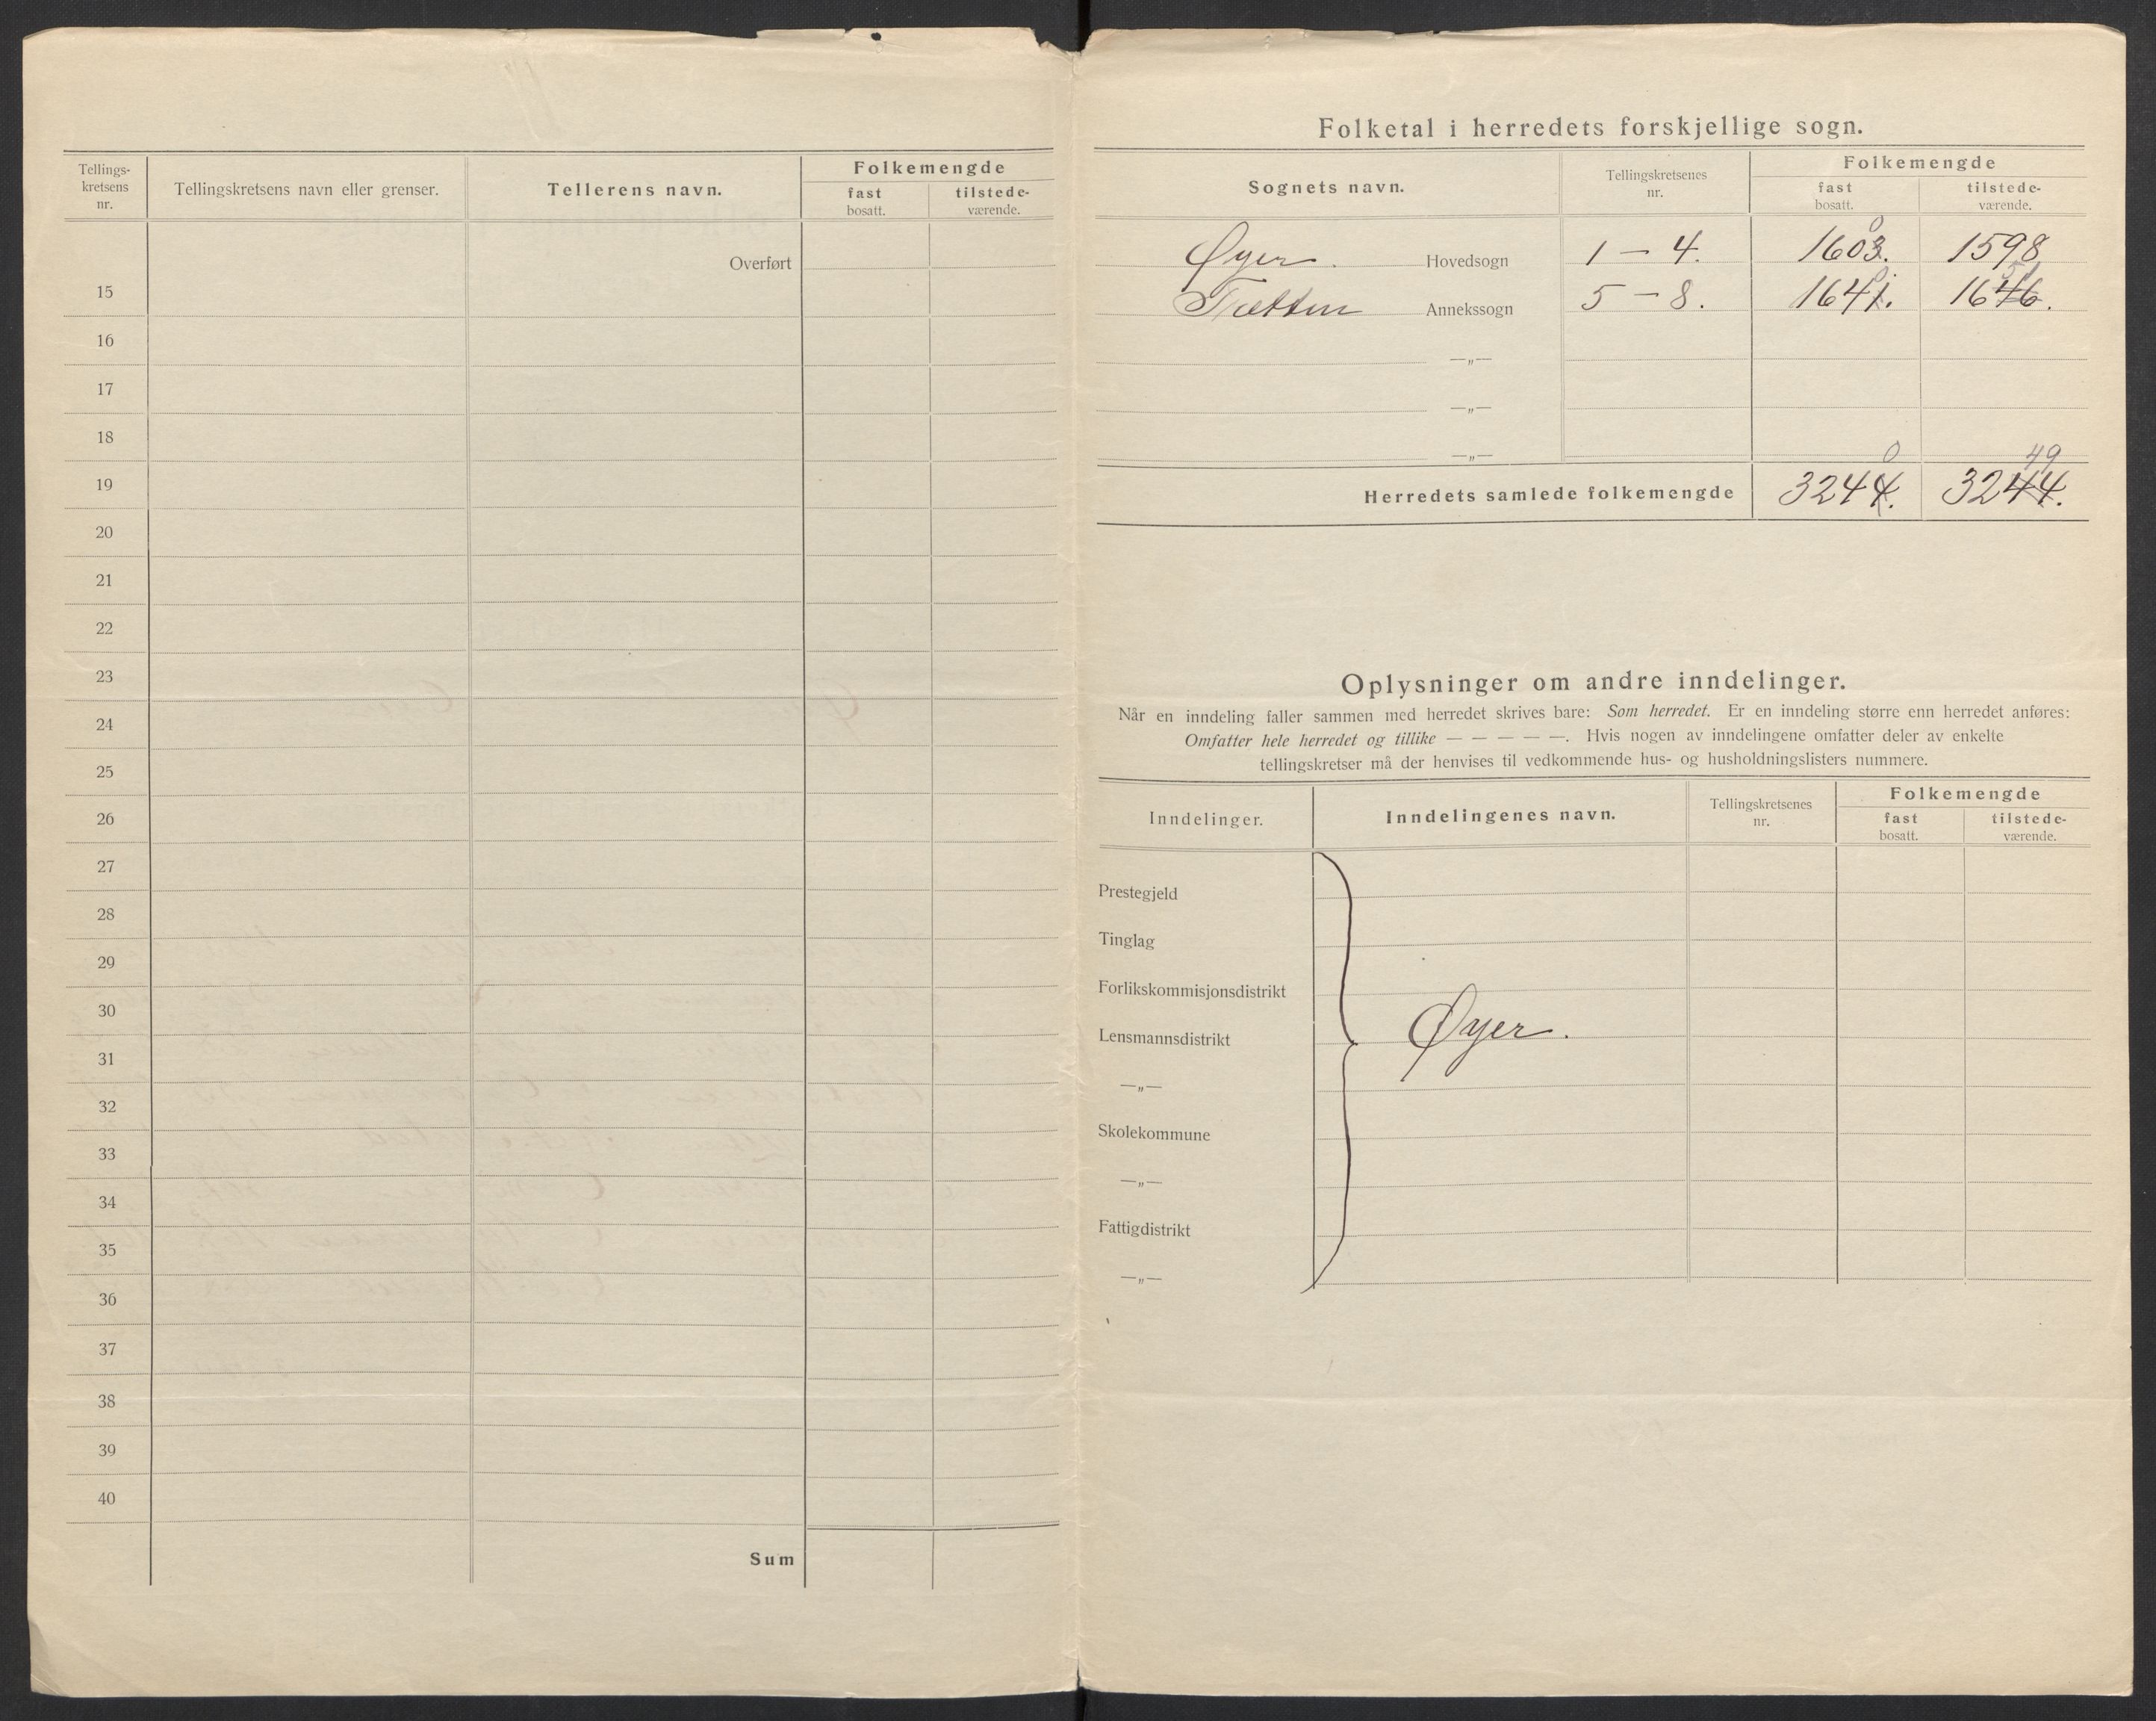 Tellings-
kretsens
nr.
Tellingskretsens navn eller grenser.
Tellerens navn.
Folkemengde
fast
bosatt.
tilstede-
værende.
Overført
15
16
17
18
19
20
21
22
23
24
25
26
27
28
29
30
31
32
33
34
35
36
37
38
39
40
Sum
Folketal i herredets forskjellige sogn.
Sognets navn.
Tellingskretsenes
nr.
Folkemengde
fast
bosatt.
tilstede-
værende.
0
Øyer. Hovedsogn 1 — 4. 1603. 1598
0 51
Tretten Annekssogn 5 — 8. 1641. 1646.
—„—
—„—
—„—
0 49
Herredets samlede folkemengde 3244. 3244.
Oplysninger om andre inndelinger.
Når en inndeling faller sammen med herredet skrives bare: Som herredet. Er en inndeling større enn herredet anføres:
Omfatter hele herredet og tillike — — — — —. Hvis nogen av inndelingene omfatter deler av enkelte
tellingskretser må der henvises til vedkommende hus- og husholdningslisters nummere.
Inndelinger.
Inndelingenes navn.
Tellingskretsenes
nr.
Folkemengde
fast
bosatt.
tilstede-
værende.
Prestegjeld
Tinglag
Forlikskommisjonsdistrikt
Lensmannsdistrikt
Øyer.
—„—
Skolekommune
—„—
Fattigdistrikt
—„—